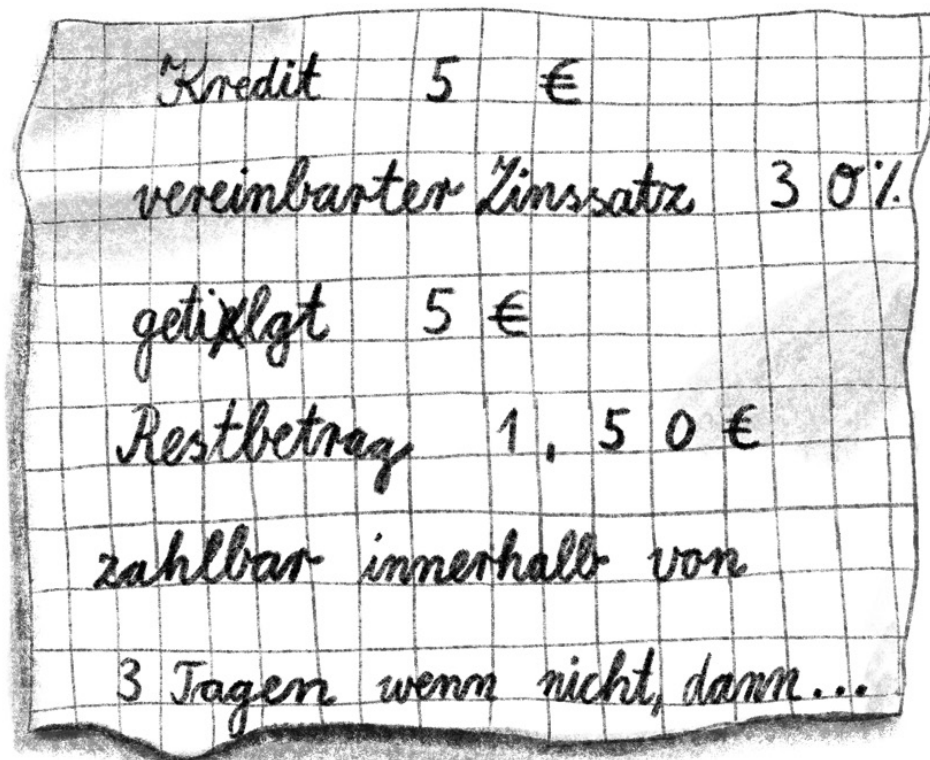 Kredit 5 €
vereinbarter Zinssatz 30%
getilgt 5 €
Restbetrag 1,50 €
zahlbar innerhalb von
3 Tagen wenn nicht, dann...